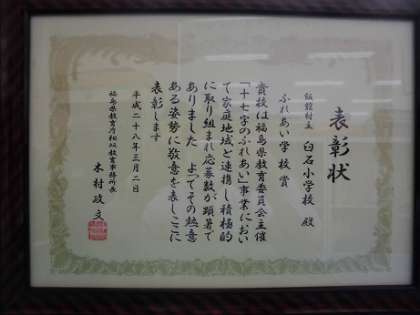 表彰状
飯舘村立 臼石小学校 殿
ふれあい学校賞
貴校は福島県教育委員会主催
「十七字のふれあい」事業におい
て家庭地域と連携し積極的
に取り組まれ応募数が顕著で
ありました よってその熱意
ある姿勢に敬意を表しここに
表彰します
平成二十八年三月二日
福島県教育庁相双教育事務所長
木村政文